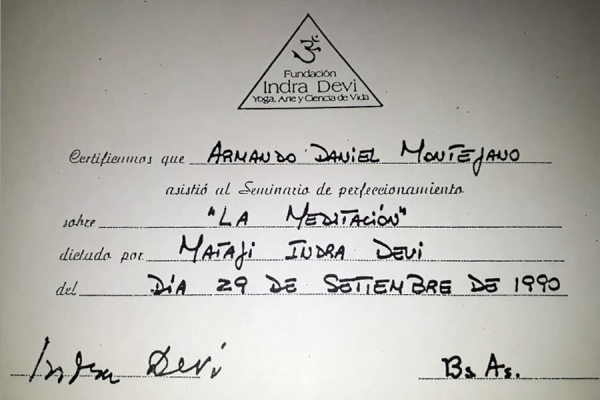 ॐ
Fundación
Indra Devi
Yoga, Arte y Ciencia de Vida
Certificamos que ARMANDO DANIEL MONTEJANO
asistió al Seminario de perfeccionamiento
sobre "LA MEDITACIÓN"
dictado por MATAJI INDRA DEVI
del DÍA 29 DE SETIEMBRE DE 1990
Indra Devi Bs As.